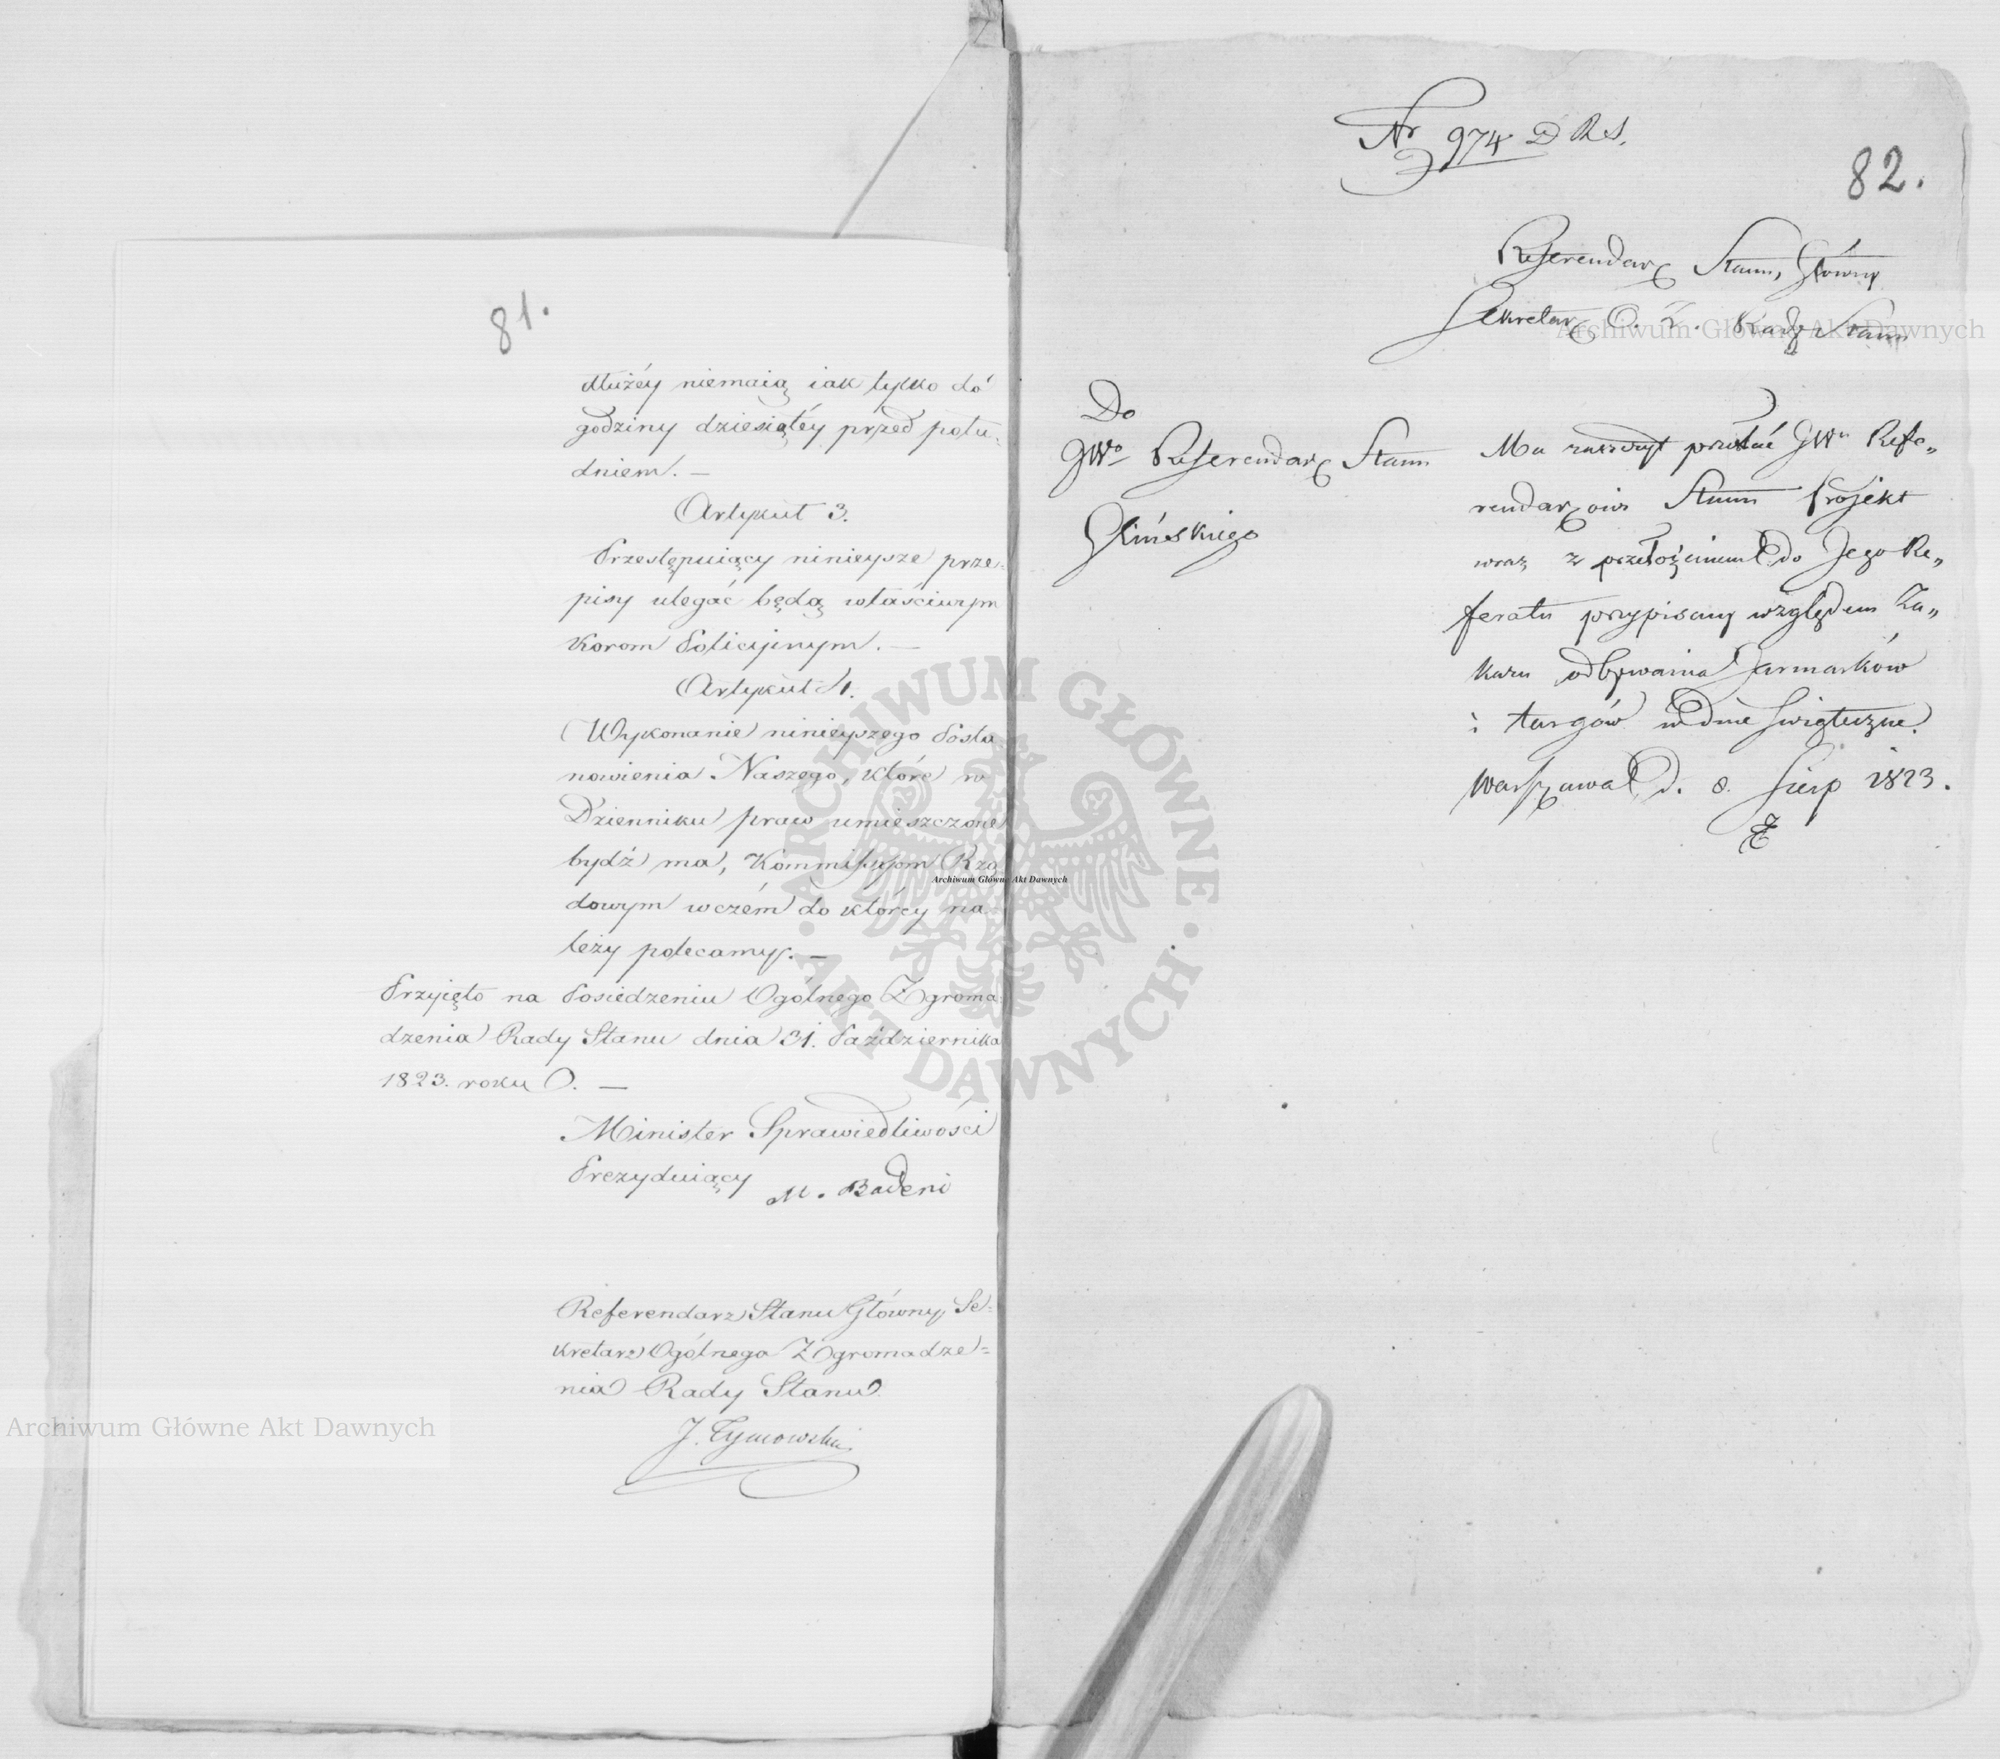 81.
dłużéy niemaią iak tylko do
godziny dziesiątéy przed połu-
dniem. —
Artykuł 3.
Przestępuiący ninieysze prze-
pisy ulegać będą właściwym
Korom Policyinym. —
Artykuł 4.
Wykonanie ninieyszego Posta
nowienia Naszego, które w
Dzienniku praw umieszczone
bydź ma, Kommissyom Rzą
dowym wczém do którey na
leży polecamy. —
Przyięto na Posiedzeniu Ogólnego Zgroma
dzenia Rady Stanu dnia 31. Października
1823. roku. —
Minister Sprawiedliwości
Prezyduiący M. Badeni
Referendarz Stanu Główny, Se-
kretarz Ogólnego Zgromadze-
nia Rady Stanu.
J. Tymowski
Nr 974 D R S.
82.
Referendarz Stanu, Główny
Sekretarz O. Z. Rady Stanu
Do
JWo Referendarza Stanu
Glińskiego
Ma zaszczyt przesłać JWu Refe-
rendarzowi Stanu Projekt
wraz z przełożeniem do Jego Re-
feratu przypisany względem Za-
kazu odbywania Jarmarków
i targów w dnie świąteczne.
Warszawa d. 8. Sierp 1823.
Archiwum Główne Akt Dawnych
Archiwum Główne Akt Dawnych
Archiwum Główne Akt Dawnych
ARCHIWUM GŁÓWNE · AKT DAWNYCH ·